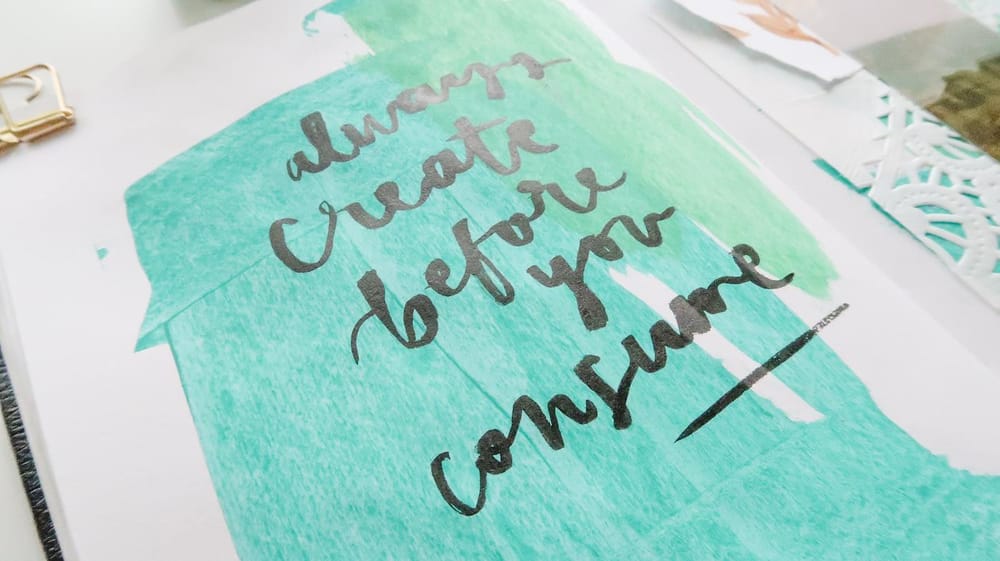 always
create
before
you
consume